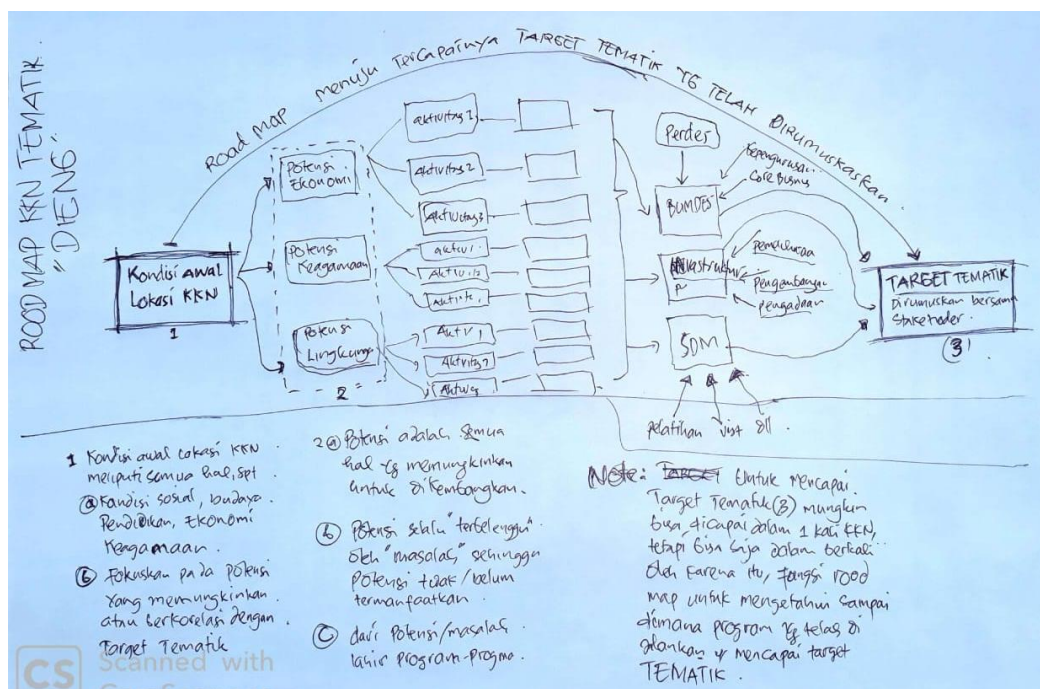 ROOD MAP KKN TEMATIK.
"DIENG"
ROAD MAP menuju TERCAPAINYA TARGET TEMATIK YG TELAH DIRUMUSKASKAN
Kondisi AWAL
Lokasi KKN
1
Potensi
Ekonomi
Potensi
Keagamaan
Potensi
Lingkung
2
aktivitas 1
Aktivitas 2
Aktivitas 3
Aktiv 1
Aktivitas
Perdes
BUMDES
Kepengurusan
Core Bisnis
Infrastruktur
Pemeliharaan
Pengembangan
pengadaan
SDM
pelatihan visit dll.
TARGET TEMATIK
Dirumuskan bersama
Stakeholder.
3
1 Kondisi awal Lokasi KKN
meliputi semua hal, spt
a Kondisi sosial, budaya
Pendidikan, Ekonomi
Keagamaan.
b Fokuskan pada potensi
yang memungkinkan
atau berkorelasi dengan
Target Tematik
2 a Potensi adalah semua
hal yg memungkinkan
untuk dikembangkan.
b Potensi selalu "terbelenggu"
oleh "masalah" sehingga
potensi tidak/belum
termanfaatkan.
C dari potensi/masalah
lahir program-progma.
Note: Untuk mencapai
Target Tematik (3) mungkin
bisa dicapai dalam 1 kali KKN,
tetapi bisa saja dalam berkali
Oleh karena itu, fungsi rood
map untuk mengetahui sampai
dimana program yg telah di
jalankan mencapai target
TEMATIK.
CS Scanned with